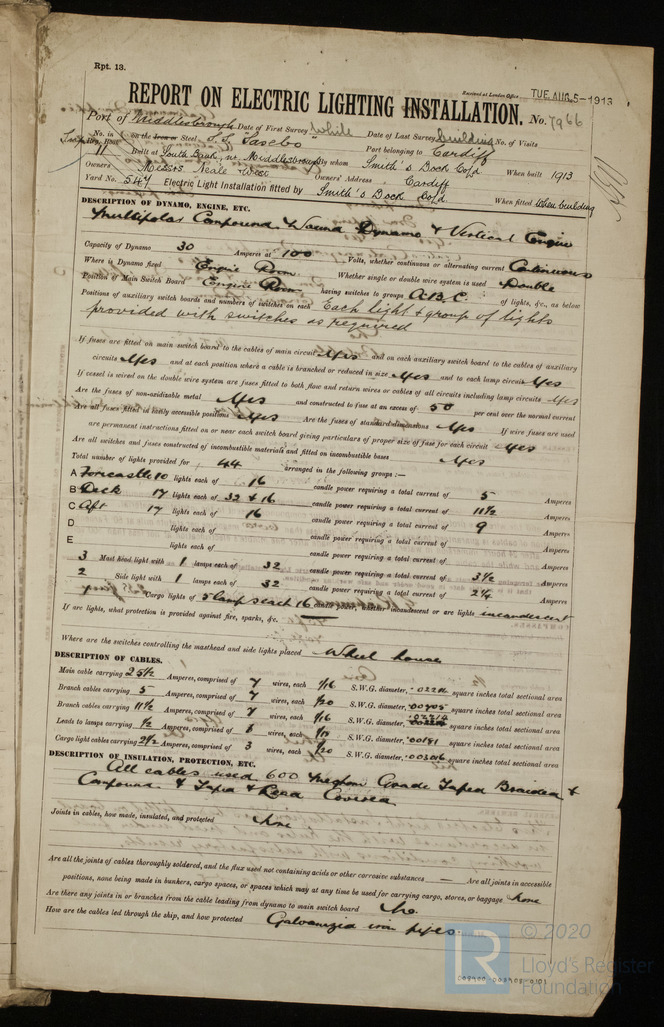 Rpt. 13.
Received at London Office TUE. AUG. 5-1913
REPORT ON ELECTRIC LIGHTING INSTALLATION. No. 7966
Port of Middlesbrough Date of First Survey While Date of Last Survey building No. of Visits
No. in Reg. Book on the Iron or Steel S.S. "Sasebo" Port belonging to Cardiff
Built at South Bank, nr. Middlesbrough By whom Smith's Dock Co Ld When built 1913
Owners Messrs. Neale & West Owners' Address Cardiff
Yard No. 547 Electric Light Installation fitted by Smith's Dock Co Ld. When fitted When building
DESCRIPTION OF DYNAMO, ENGINE, ETC.
Multipolar Compound Wound Dynamo & Vertical Engine
Capacity of Dynamo 30 Amperes at 100 Volts, whether continuous or alternating current Continuous
Where is Dynamo fixed Engine Room Whether single or double wire system is used Double
Position of Main Switch Board Engine Room having switches to groups A.B.C. of lights, &c., as below
Positions of auxiliary switch boards and numbers of switches on each Each light & group of lights
provided with switches as required
If fuses are fitted on main switch board to the cables of main circuit Yes and on each auxiliary switch board to the cables of auxiliary
circuits Yes and at each position where a cable is branched or reduced in size Yes and to each lamp circuit Yes
If vessel is wired on the double wire system are fuses fitted to both flow and return wires or cables of all circuits including lamp circuits Yes
Are the fuses of non-oxidizable metal Yes and constructed to fuse at an excess of 50 per cent over the normal current
Are all fuses fitted in easily accessible positions Yes Are the fuses of standard dimensions Yes If wire fuses are used
are permanent instructions fitted on or near each switch board giving particulars of proper size of fuse for each circuit Yes
Are all switches and fuses constructed of incombustible materials and fitted on incombustible bases Yes
Total number of lights provided for 44 arranged in the following groups :—
A Forecastle 10 lights each of 16 candle power requiring a total current of 5 Amperes
B Deck 17 lights each of 32 & 16 candle power requiring a total current of 11½ Amperes
C Aft 17 lights each of 16 candle power requiring a total current of 9 Amperes
D lights each of candle power requiring a total current of Amperes
E lights each of candle power requiring a total current of Amperes
3 Mast head light with 1 lamps each of 32 candle power requiring a total current of 3½ Amperes
2 Side light with 1 lamps each of 32 candle power requiring a total current of 2¼ Amperes
Cargo lights of 5 lamps each 16 candle power, whether incandescent or arc lights incandescent
If arc lights, what protection is provided against fire, sparks, &c. —
Where are the switches controlling the masthead and side lights placed Wheel house
DESCRIPTION OF CABLES.
Main cable carrying 25½ Amperes, comprised of 7 wires, each 1/16 S.W.G. diameter, .02214 square inches total sectional area
Branch cables carrying 5 Amperes, comprised of 7 wires, each 1/20 S.W.G. diameter, .00705 square inches total sectional area
Branch cables carrying 11½ Amperes, comprised of 7 wires, each 1/16 S.W.G. diameter, .02214 square inches total sectional area
Leads to lamps carrying ½ Amperes, comprised of 1 wires, each 1/18 S.W.G. diameter, .00181 square inches total sectional area
Cargo light cables carrying 2½ Amperes, comprised of 3 wires, each 1/20 S.W.G. diameter, square inches total sectional area
DESCRIPTION OF INSULATION, PROTECTION, ETC.
All cables used 600 Megohm Grade Taped Braided &
Compound & Taped & Lead Covered
Joints in cables, how made, insulated, and protected None
Are all the joints of cables thoroughly soldered, and the flux used not containing acids or other corrosive substances — Are all joints in accessible
positions, none being made in bunkers, cargo spaces, or spaces which may at any time be used for carrying cargo, stores, or baggage None
Are there any joints in or branches from the cable leading from dynamo to main switch board No.
How are the cables led through the ship, and how protected Galvanized iron pipes.
LR © 2020
Lloyd's Register
Foundation